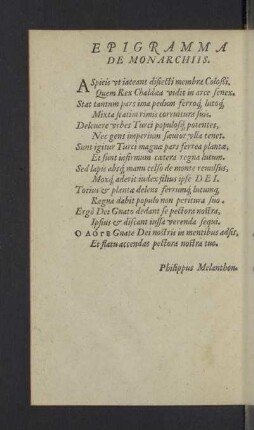 EPIGRAMMA
DE MONARCHIIS.
ASpicis vt iaceant disiecti membra Colossi,
Quem Rex Chaldæa vidit in arce senex.
Stat tantum pars ima pedum ferroq́; lutoq́;
Mixta statim nimis corruitura suis.
Deleuere vrbes Turci populosq́; potentes,
Nec gens imperium sæuior vlla tenet.
Sunt igitur Turci magna pars ferrea plantæ,
Et sunt infirmum cætera regna lutum.
Sed lapis absq́; manu celso de monte reuulsus,
Moxq́; aderit index filius ipse DEI.
Totius & plantæ delens ferrumq́; lutumq́;
Regna dabit populo non peritura suo.
Ergò Dei Gnato dedant se pectora nostra,
Ipsius & discant iussa verenda sequi.
Ο ΛΟΓΕ Gnate Dei nostris in mentibus adsis,
Et flatu accendas pectora nostra tuo.
Philippus Melanthon.